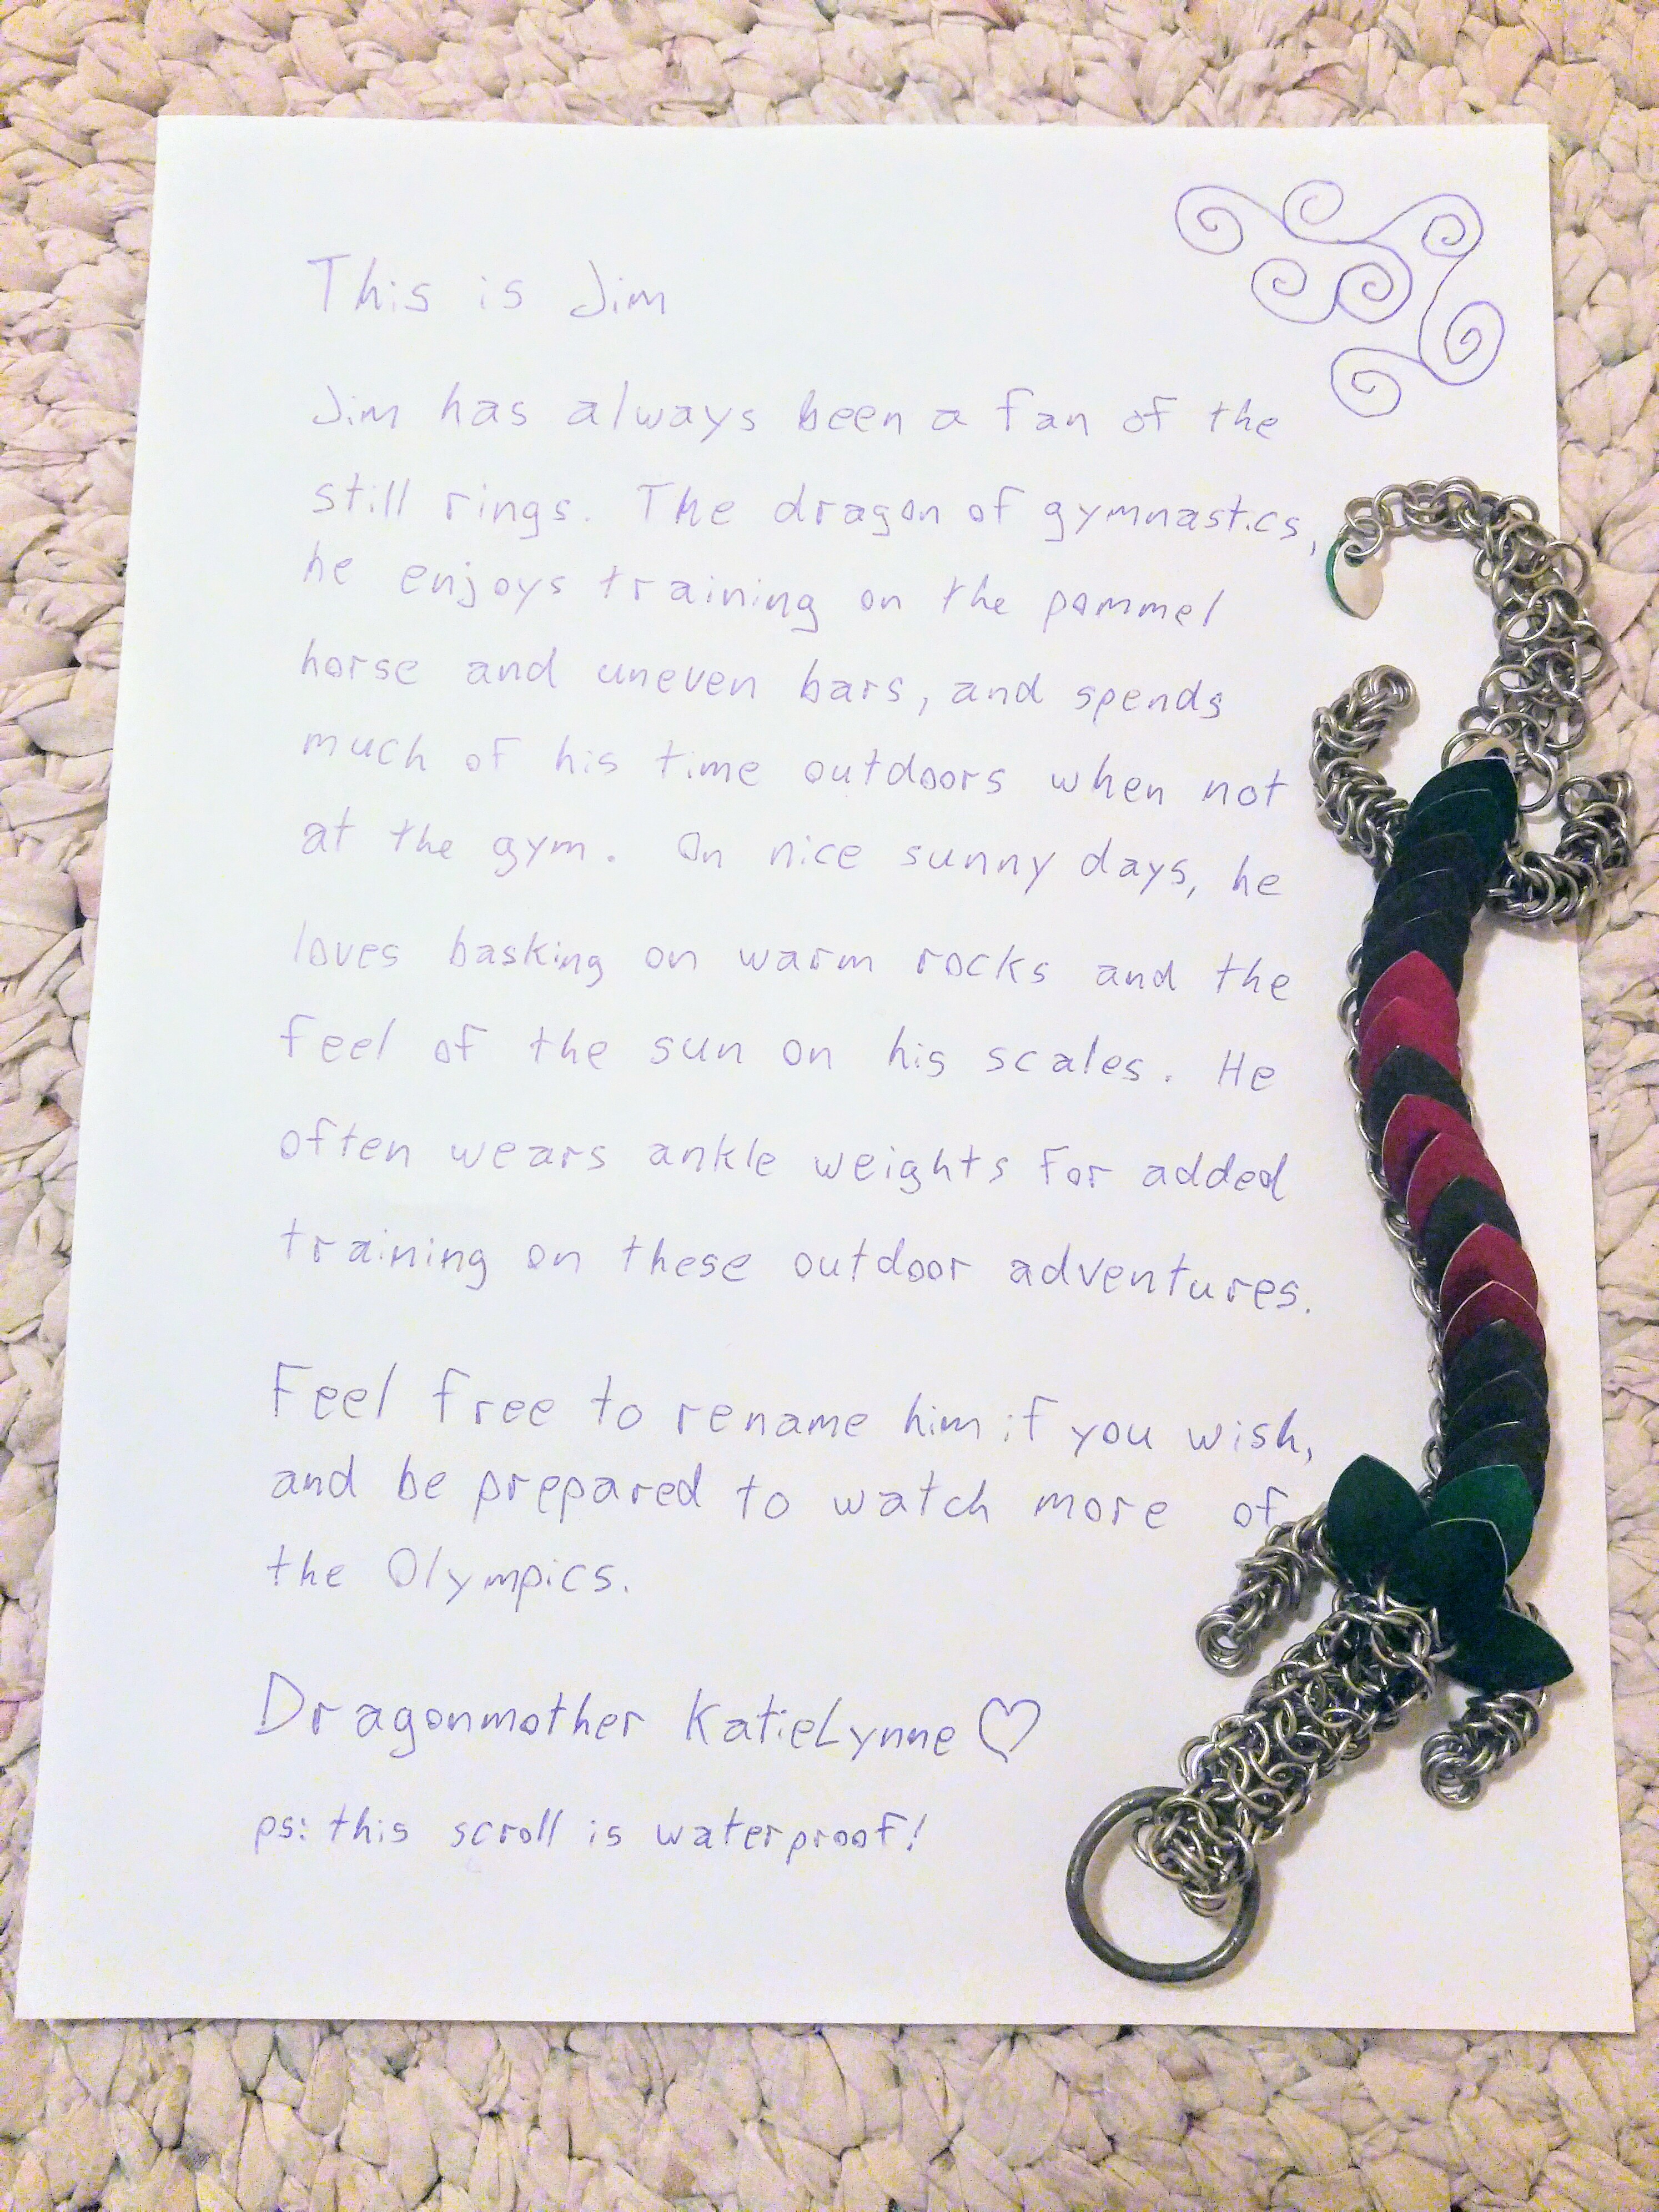 This is Jim
Jim has always been a fan of the
still rings. The dragon of gymnastics,
he enjoys training on the pommel
horse and uneven bars, and spends
much of his time outdoors when not
at the gym. On nice sunny days, he
loves basking on warm rocks and the
feel of the sun on his scales. He
often wears ankle weights for added
training on these outdoor adventures.
Feel free to rename him if you wish,
and be prepared to watch more of
the Olympics.
Dragonmother KatieLynne ♡
ps: this scroll is waterproof!